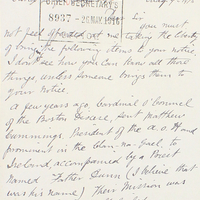 SECRETARY'S
8937 - 26 MAY 1916
Sir
you must
not feel
me taking the liberty
of bring the following items to your notice,
I don't see how you can know all these
things, unless someone brings them to
your notice.
A few years ago, Cardinal O'Connell
of the Boston Diocese, sent Matthew
Cummings, President of the A.O.H. and
prominent in the Clan-na-gael, to
Ireland, accompanied by a Priest
named Father Dunn (I believe that
was his name) Their Mission was